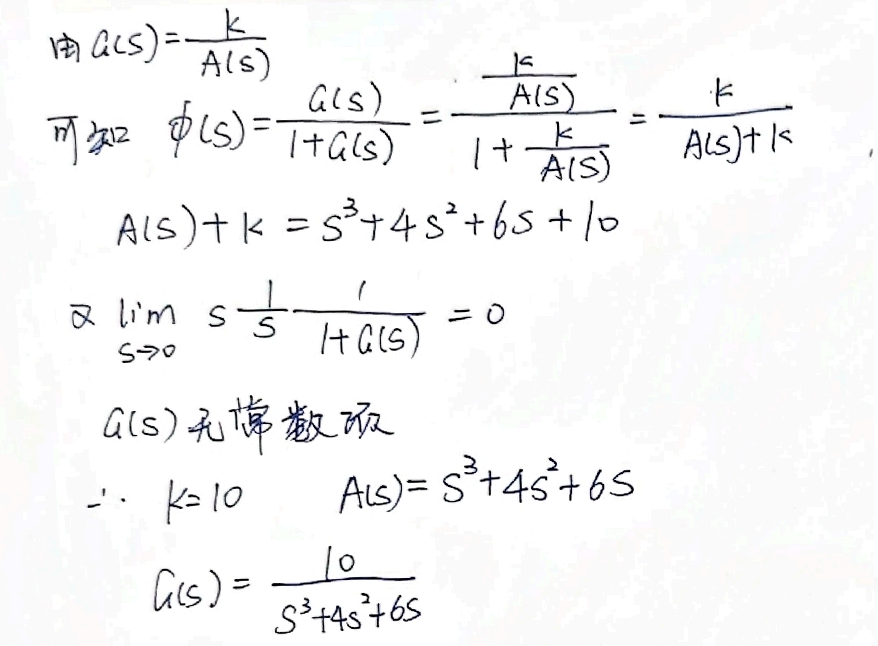 由 G(s)=k/A(s)
可知 ϕ(s)=G(s)/(1+G(s))=(k/A(s))/(1+k/A(s))=k/(A(s)+k)
A(s)+k=s³+4s²+6s+10
又 lim_{s→0} s 1/s 1/(1+G(s))=0
G(s)无常数项
∴ k=10 A(s)=s³+4s²+6s
G(s)=10/(s³+4s²+6s)